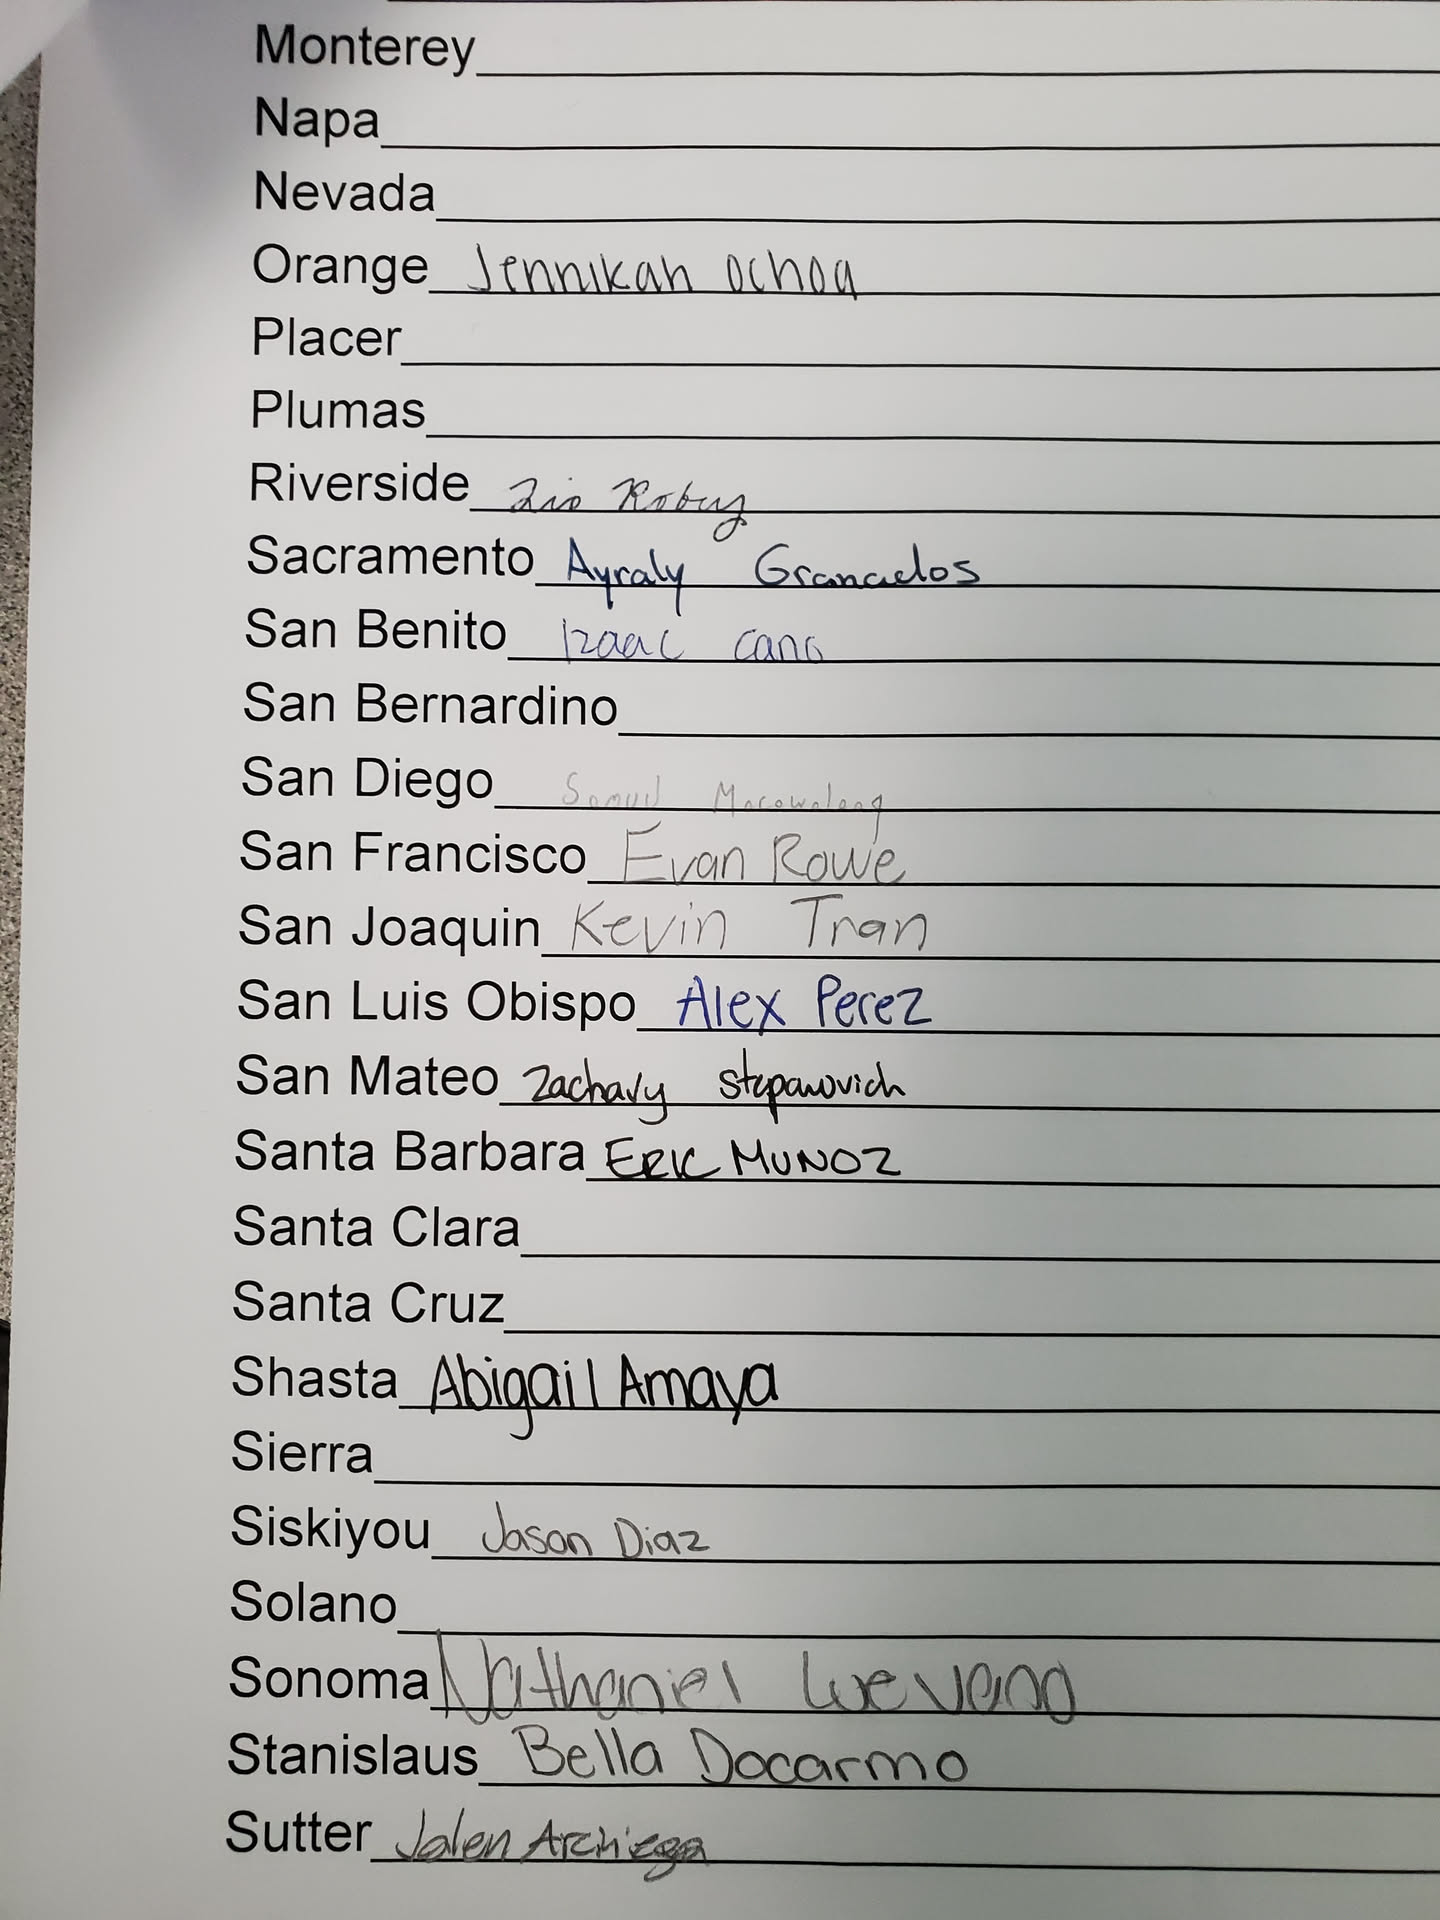 Monterey
Napa
Nevada
Orange Jennikah Ochoa
Placer
Plumas
Riverside Zio Roby
Sacramento Ayraly Granados
San Benito Izaac Cano
San Bernardino
San Diego Samuil
San Francisco Evan Rowe
San Joaquin Kevin Tran
San Luis Obispo Alex Perez
San Mateo Zachary Stepanovich
Santa Barbara ERIC MUNOZ
Santa Clara
Santa Cruz
Shasta Abigail Amaya
Sierra
Siskiyou Jason Diaz
Solano
Sonoma Nathaniel Luevano
Stanislaus Bella Docarmo
Sutter Jalen Archiega